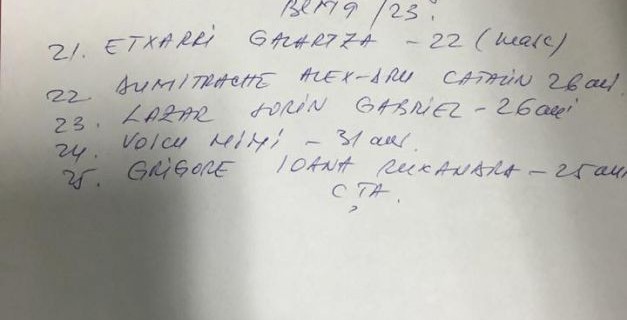 /23.
21. ETXARRI GALARTZA - 22 (masc)
22 DUMITRACHE ALEX-DRU CATALIN 26 ani
23. LAZAR SORIN GABRIEL - 26 ani
24. VOICU MIMI - 31 ani
25. GRIGORE IOANA RUXANDRA - 25 ani
CTA.